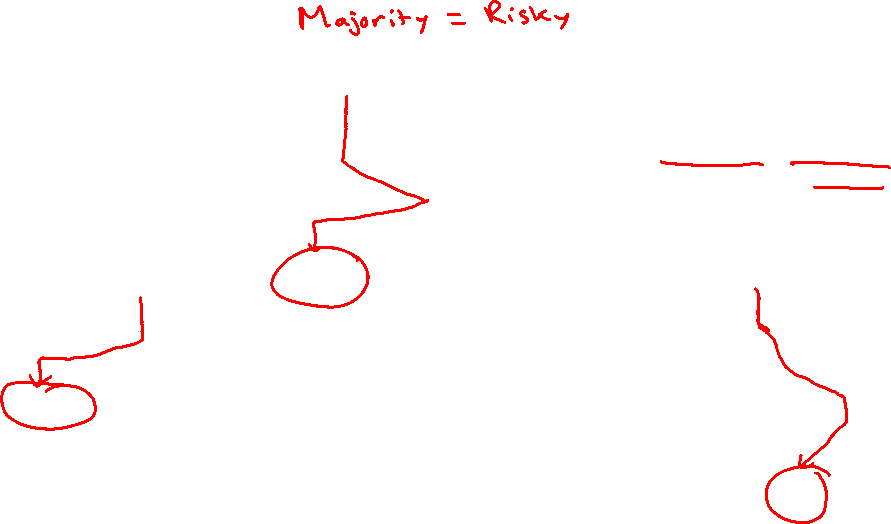 Majority = Risky